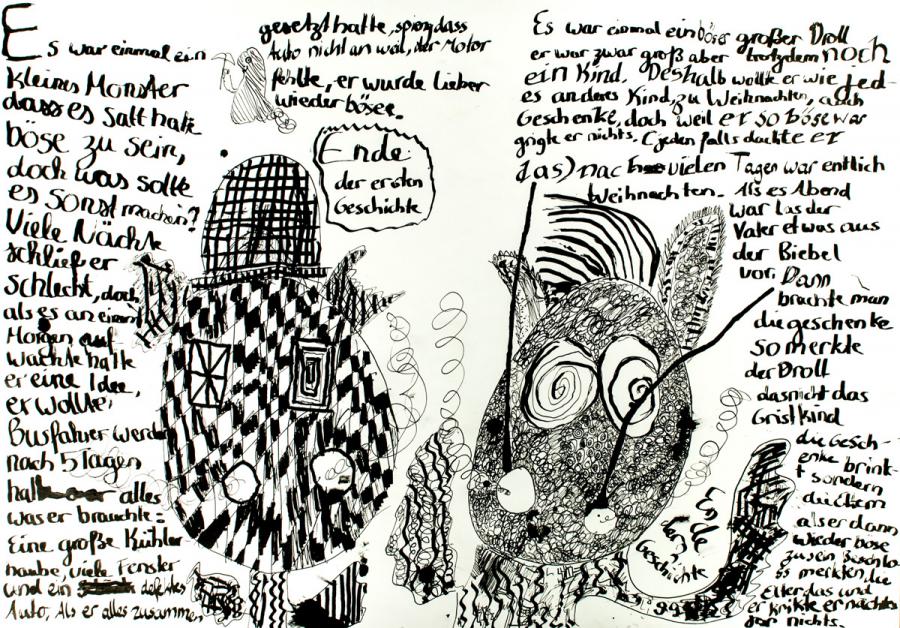 Es war einmal ein
kleines Monster
dass es satt hatte
böse zu sein,
doch was sollte
es sonst machen?
Viele Nächte
schlief er
schlecht, doch
als es an einem
Morgen auf
wachte hatte
er eine Idee,
er wollte,
Busfahrer werden
nach 5 Tagen
hatte er alles
was er brauchte:
Eine große Kühler
haube, viele Fenster
und ein defektes
Auto, Als er alles zusammen
gesetzt hatte, sprang dass
Auto nicht an weil, der Motor
fehlte, er wurde lieber
wieder böse.
Ende
der ersten
Geschichte
Es war einmal ein böser großer Droll
er war zwar groß aber trotzdem noch
ein Kind. Deshalb wollte er wie jed-
es anderes Kind, zu Weihnachten, auch
Geschenke, doch weil er so böse war
grigte er nichts. (jeden falls dachte er
das) nac vielen Tagen war entlich
Weihnachten. Als es Abend
war las der
Vater etwas aus
der Biebel
vor. Dann
brachte man
die geschenke
so merkte
der Droll
das nicht das
Gristkind
die Gesch-
enke brink-
t sondern
die Eltern
als er dann
wieder böse
zu sein
merkten, die
Elter das und
er krikte er nächstes
gar nichts.
Ende
der 2.
Geschichte